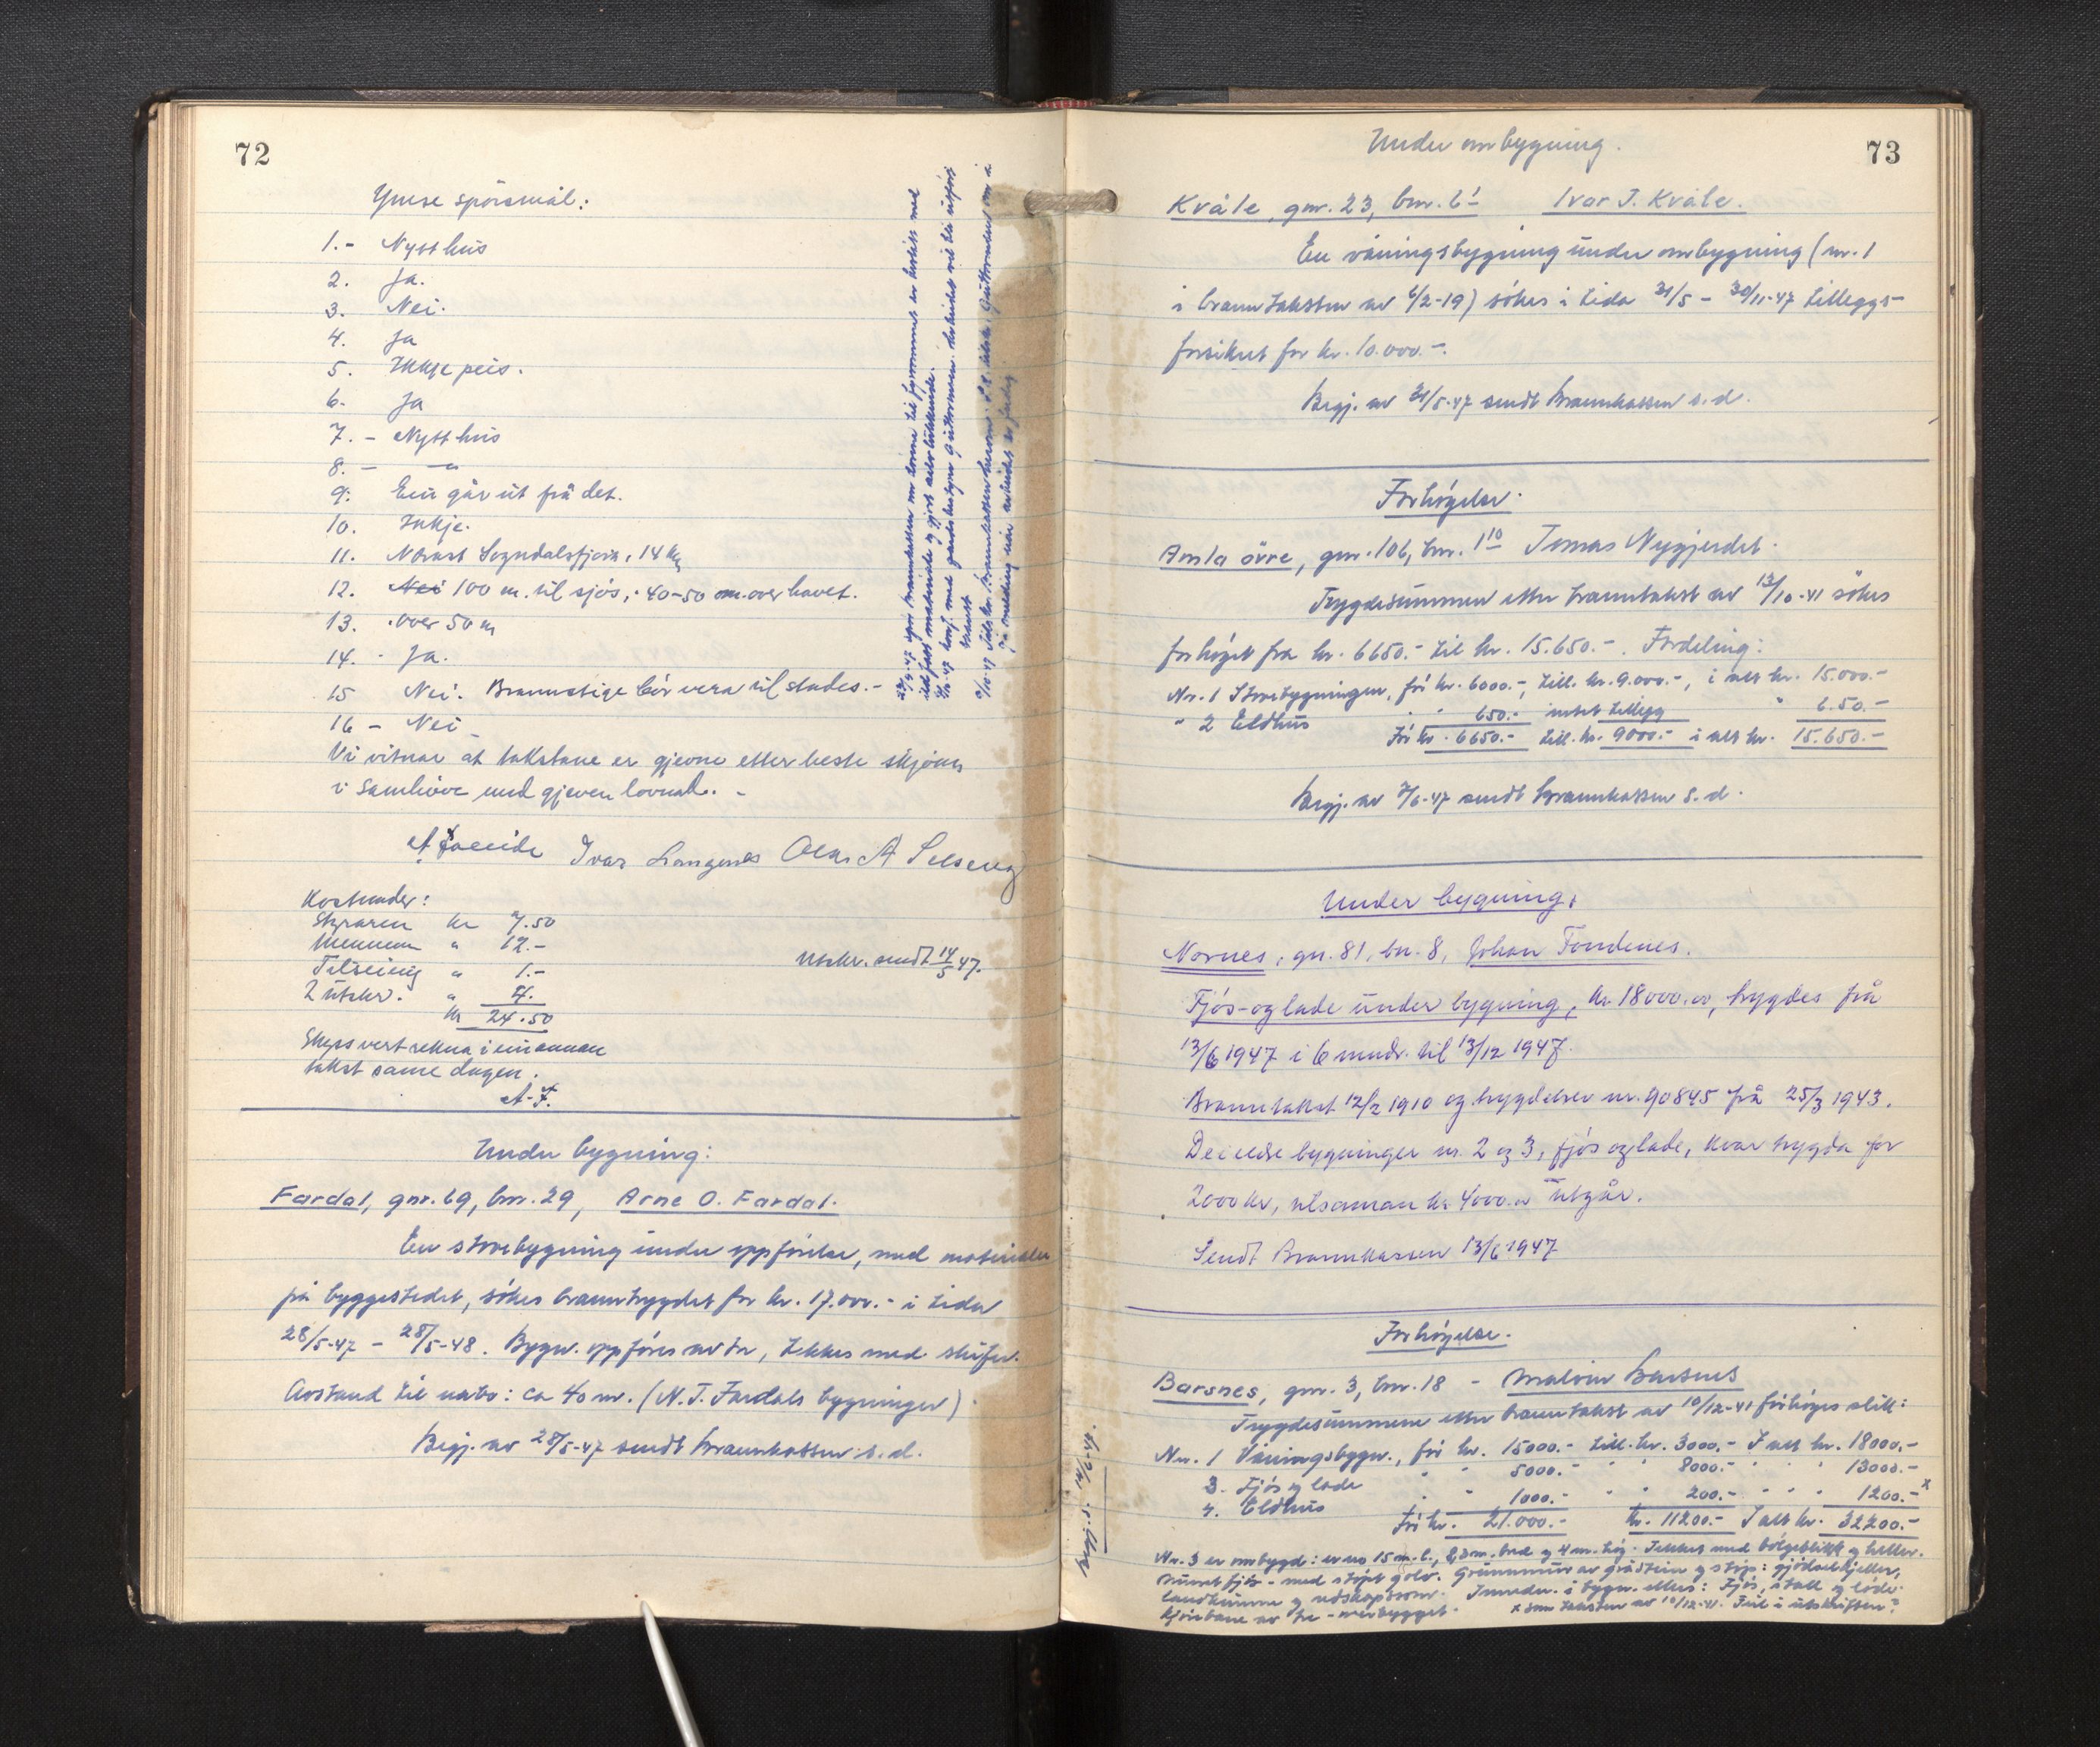 72
Ymse spörsmål:
1.- Nytt hus
2. Ja.
3. Nei.
4. Ja
5. Ikkje peis.
6. Ja
7. - Nytt hus
8. - -"-
9. Ein går ut frå det.
10. Ikkje.
11. Nörast Sogndalsfjöra, 14 km
12. Nei 100 m. til sjös, 40-50 m. over havet.
13. over 50 m
14. Ja.
15 Nei. Brannstige bör vera til stades.-
16 - Nei
Vi vitnar at takstane er gjevne etter beste skjöns
i samhöve med gjeven lovnad. -
Ivar Langenes A Selseng
Kostnader:
Styraren kr 7.50
Mennene " 12.-
Tilseiing " 1.-
2 utskr. " 4.
kr 24.50
Utskr. sendt 14/5 47.
Skyss vert rekna i ein annan
takst same dagen.
A.F.
Under bygning:
Fardal, gnr. 69, bnr. 29, Arne O. Fardal.
En stovebygning under oppförelse, med materialer
på byggestedet, sökes branntrygdet for kr. 17.000.- i tida
28/5-47 - 28/5-48. Bygn. oppföres av tre, tekkes med skifer.
Avstand til nabo: ca 40 m. (N. T. Fardals bygninger)
Begj. av 28/5-47 sendt brannkassen s. d.
73
Under ombygning.
Kvåle, gnr. 23, bnr. 6 Ivar J. Kvåle.
En våningsbygning under ombygning (nr. 1
i branntaksten av 6/2-19) sökes i tida 31/5 - 30/11-47 tilleggs-
forsikret for kr. 10.000.-.
Begj. av 31/5-47 sendt brannkassen s. d.
Forhöyelse.
Amla övre, gnr. 106, bnr. 1 10 Tomas Nygjerdet.
Trygdesummen etter branntakst av 13/10-41 sökes
forhöyet fra kr. 6650.- til kr. 15.650.-. Fordeling:
Nr. 1 Stovebygningen, för kr. 6000.-, till. kr. 9.000.-, i alt kr. 15.000.-
" 2 Eldhus " " 650.- intet tillegg " 6.50.-
För kr. 6650.- till. kr. 9000.- i alt kr. 15.650.-
Begj. av 7/6-47 sendt brannkassen s. d.
Under bygning.
Nornes, gn. 81, bn. 8, Johan Fondenes.
Fjös- og lade under bygning, kr 18000.00, trygdes frå
13/6 1947 i 6 mndr. til 13/12 1947.
Branntakst 12/2 1910 og trygdebrev nr. 90845 frå 25/3 1943.
Dei eldre bygninger nr. 2 og 3, fjös og lade, kvar trygda for
2000 kr, tilsaman kr 4000.00 utgår.
Sendt Brannkassen 13/6 1947
Forhöyelse.
Barsnes, gnr. 3, bnr. 18 - Malvin Barsnes
Trygdesummene etter branntakst av 10/12-41 forhöyes slik:
Nr. 1 Våningsbygn., för kr. 15000.- till. kr. 3000.- I alt kr. 18000.-
3. Fjös og lade " " 5000.- " " 8000.- " " " 13000.-
4. Eldhus " " 1000.- " " 200.- " " " 1200.- x
För kr. 21.000.- Kr. 11200.- I alt kr. 32200.-
Begj. s. 14/6-47.
Nr. 3 er ombygd: er no 15 m. l., 8,2 m. bred og 4 m. hög. Tekket med bölgeblikk og heller.
Muret fjös - med stöpt golv. Grunnmur av gråstein og stöp: gjödselkjeller,
landkinne og redskapsrom. Innredn. i bygn. ellers: Fjös, stall og löde.
Kjörebane av tre - overbygget. x som taksten av 10/12-41. Feil i utskriften?